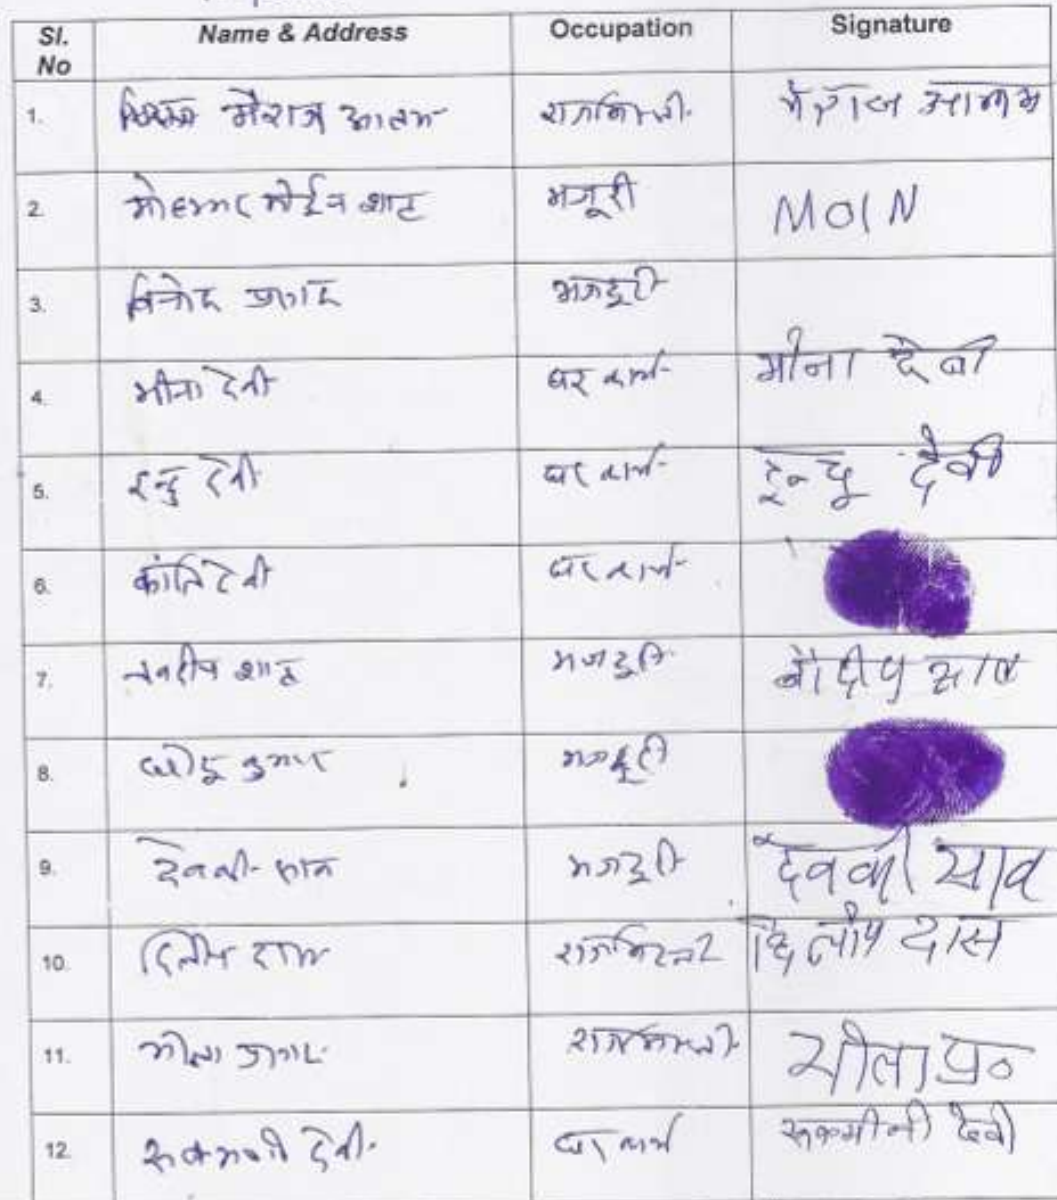 Sl. No Name & Address Occupation Signature
1. मैराज आलम राजमिस्त्री मैराज आलम
2. मोहम्मद मोईन शाह मजूरी MOIN
3. विनोद प्रसाद मजदुरी
4. मीना देवी घर कार्य मीना देवी
5. इन्दु देवी घर कार्य इन्दू देवी
6. कांति देवी घर कार्य
7. नवदीप शाह मजदुरी साव
8. कुमार मजदुरी
9. देवकी साव मजदुरी देवकी साव
10. दिलीप दास राजमिस्त्री दिलीप दास
11. प्रसाद राजमिस्त्री भोला प्र०
12. रूकमनी देवी घर कार्य रूकमीनी देवी